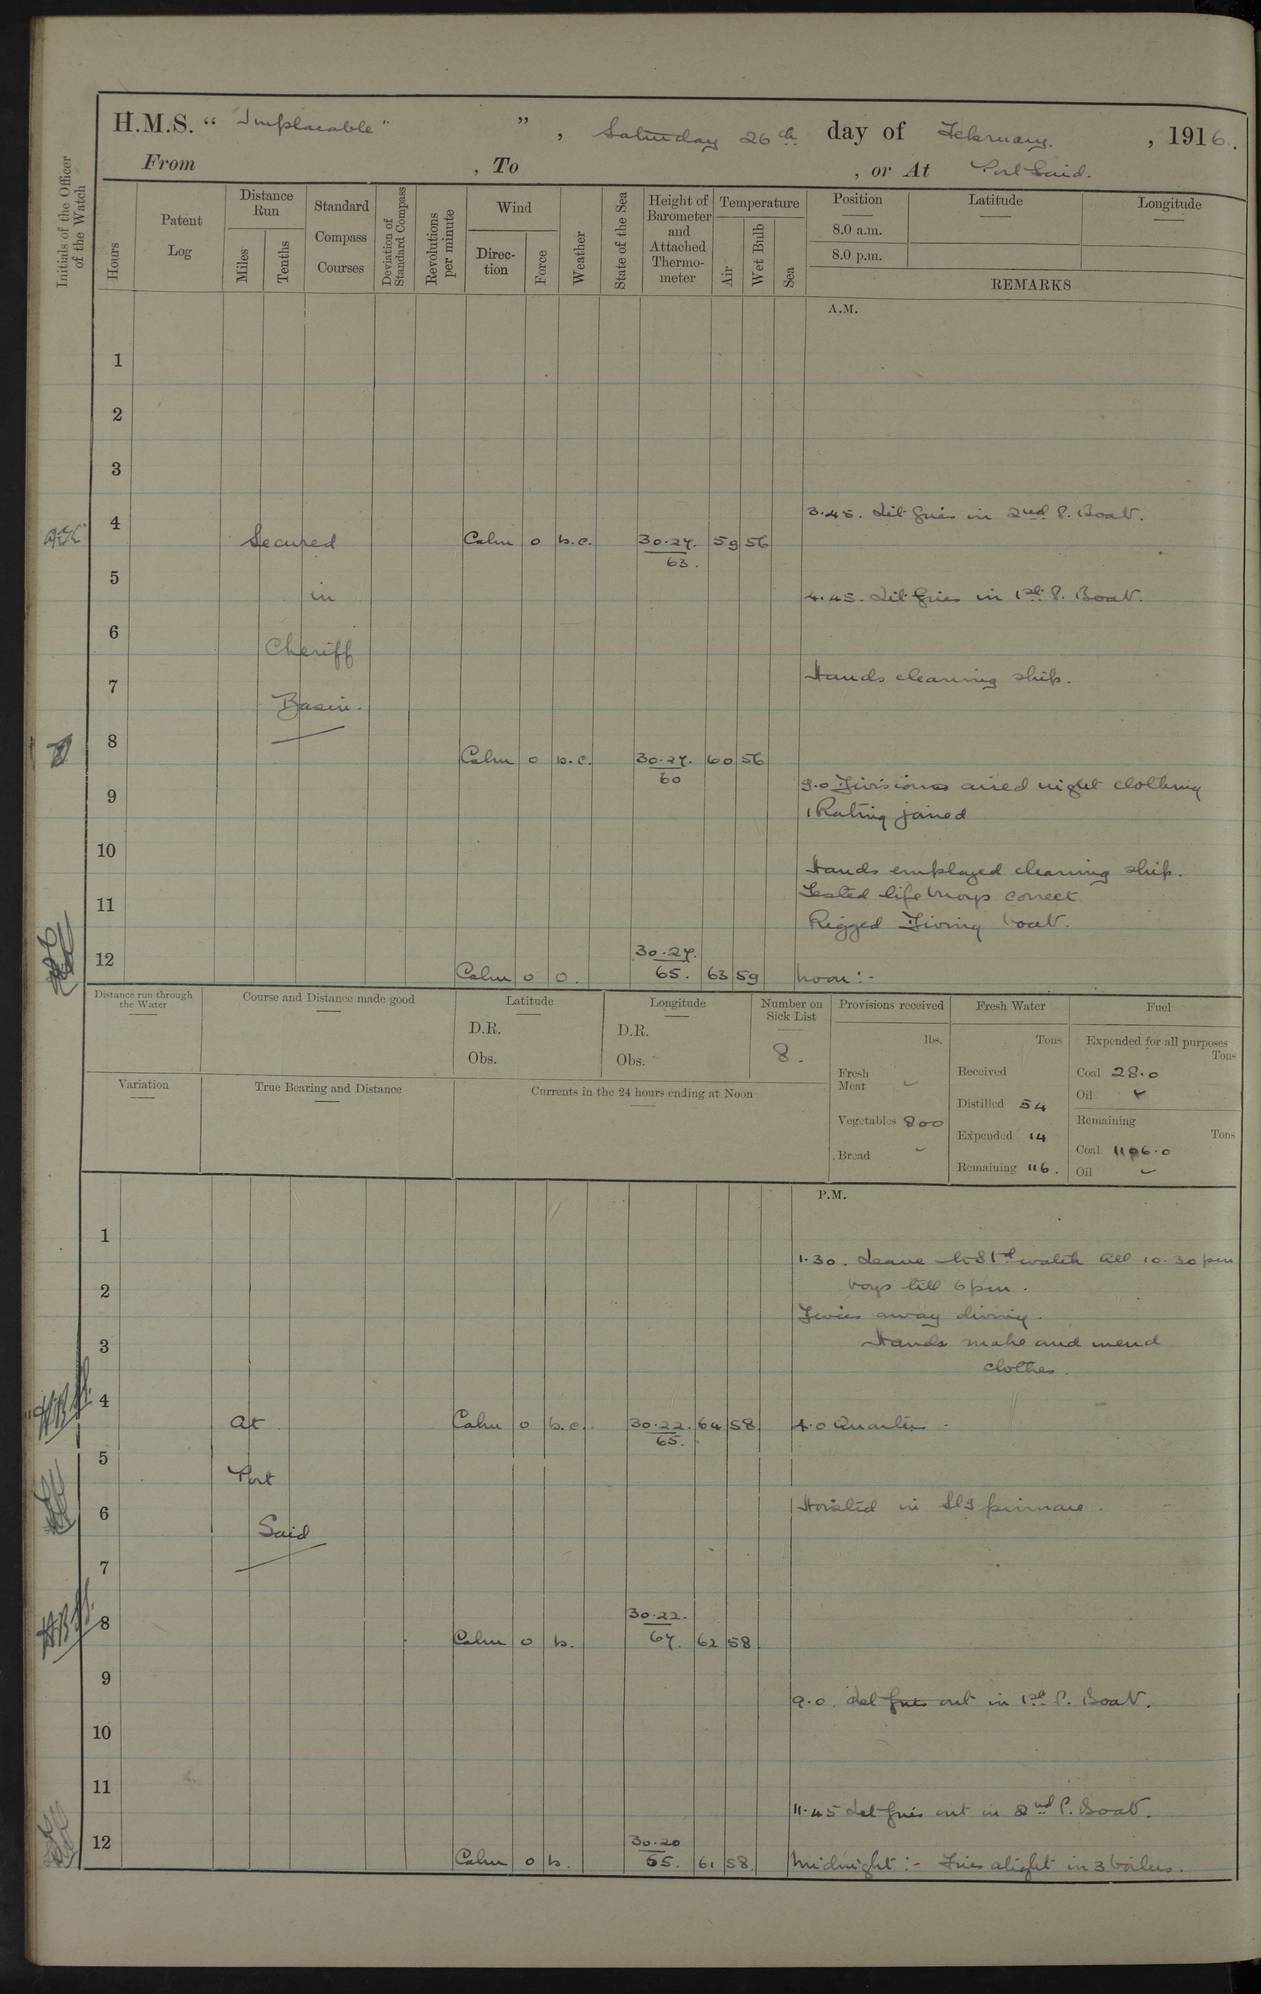 H.M.S. " Implacable " " , Saturday 26th day of February. , 1916.
From , To , or At Port Said.
Initials of the Officer of the Watch
Hours
Patent Log
Distance Run
Miles
Tenths
Standard Compass Courses
Deviation of Standard Compass
Revolutions per minute
Wind
Direc-tion
Force
Weather
State of the Sea
Height of Barometer and Attached Thermo-meter
Temperature
Air
Wet Bulb
Sea
Position
8.0 a.m.
8.0 p.m.
Latitude
Longitude
REMARKS
A.M.
1
2
3
3.45. Lit fires in 2nd P. Boat.
4
Secured Calm 0 b.c. 30.27. 59 56
63.
5
in 4.45. Lit fires in 1st P. Boat.
6
Cheriff
Hands cleaning ship.
7
Basin.
8
Calm 0 b.c. 30.27. 60 56
60
9.0 Divisions aired night clothing
9
1 Rating joined
10
Hands employed cleaning ship.
Tested life buoys correct
11
Rigged Diving boat.
30.27.
12
Calm 0 0. 65. 63 59 Noon:-
Distance run through the Water
Course and Distance made good
Latitude
D.R.
Obs.
Longitude
D.R.
Obs.
Number on Sick List
8.
Provisions received
lbs.
Fresh Meat
Vegetables 800
Bread
Fresh Water
Tons
Received
Distilled 54
Expended 14
Remaining 116.
Fuel
Expended for all purposes
Tons
Coal 28.0
Oil
Remaining
Tons
Coal 1106.0
Oil
Variation
True Bearing and Distance
Currents in the 24 hours ending at Noon
P.M.
1
1.30. Leave to watch till 10.30 pm
2 boys till 6 pm.
away diving.
3 Hands make and mend
clothes.
4
At Calm 0 b.c. 30.22. 64 58 4.0 Quarters.
65.
5
Port
6 Hoisted in pinnace.
Said
7
30.22.
8
Calm 0 b. 67. 62 58
9
9.0. Let fires out in 1st P. Boat.
10
11
11.45 Let fires out in 2nd P. Boat.
12 30.20
Calm 0 b. 65. 61 58. Midnight:- Fires alight in 3 boilers.